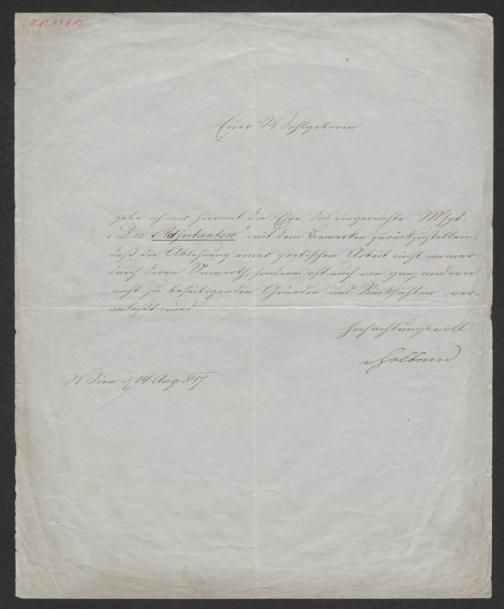 Euer Wohlgeboren
gebe ich mir hiermit die Ehre das eingereichte Mspt.
„Die Adjutanten" mit dem Bemerken zurückzustellen,
daß die Ablehnung einer poetischen Arbeit nicht immer
durch deren Unwerth, sondern oft auch von ganz anderen
nicht zu beseitigenden Gründen und Rücksichten ver-
anlaßt wird
Hochachtungsvoll
Holbein
Wien d 14 Aug. 847